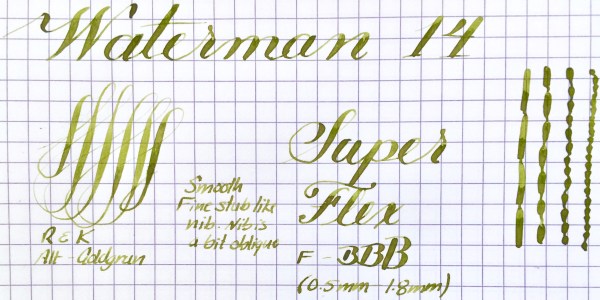 Waterman 14
Super
Flex
F - BBB
(0.5mm 1.8mm)
Smooth
Fine stub like
nib. Nib is
a bit oblique
R & K
Alt - Goldgrun